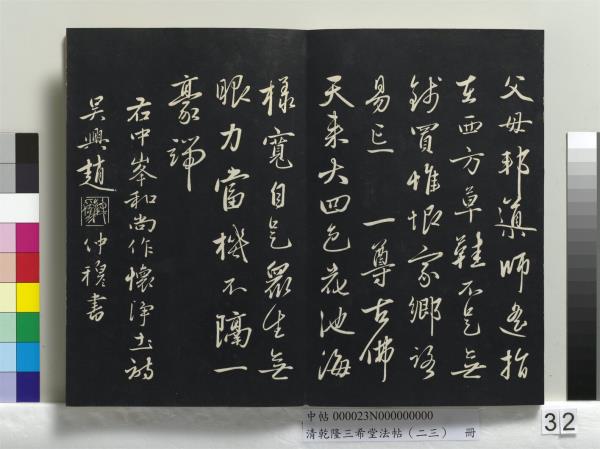 父母邦導師遙指
在西方草鞋不是無
錢買惟恨家鄉路
易忘 一尊古佛
天來大四色花池海
樣寬自是眾生無
眼力當機不隔一
豪端
右中峯和尚作懷淨土詩
吳興趙 仲穆書
中帖 000023N000000000
清乾隆三希堂法帖（二三） 冊
32